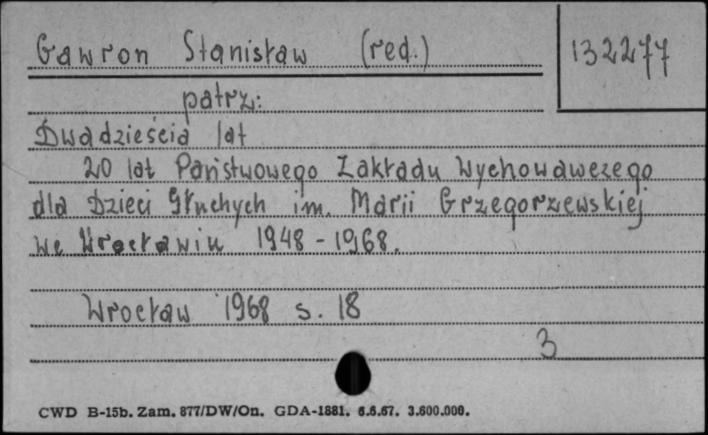 Gawron Stanisław (red.)
132277
patrz:
Dwadzieścia lat
20 lat Państwowego Zakładu Wychowawczego
dla Dzieci Głuchych im. Marii Grzegorzewskiej
we Wrocławiu 1948-1968.
Wrocław 1968 s. 18
3
CWD B-15b. Zam. 877/DW/On. GDA-1881. 6.6.67. 3.600.000.